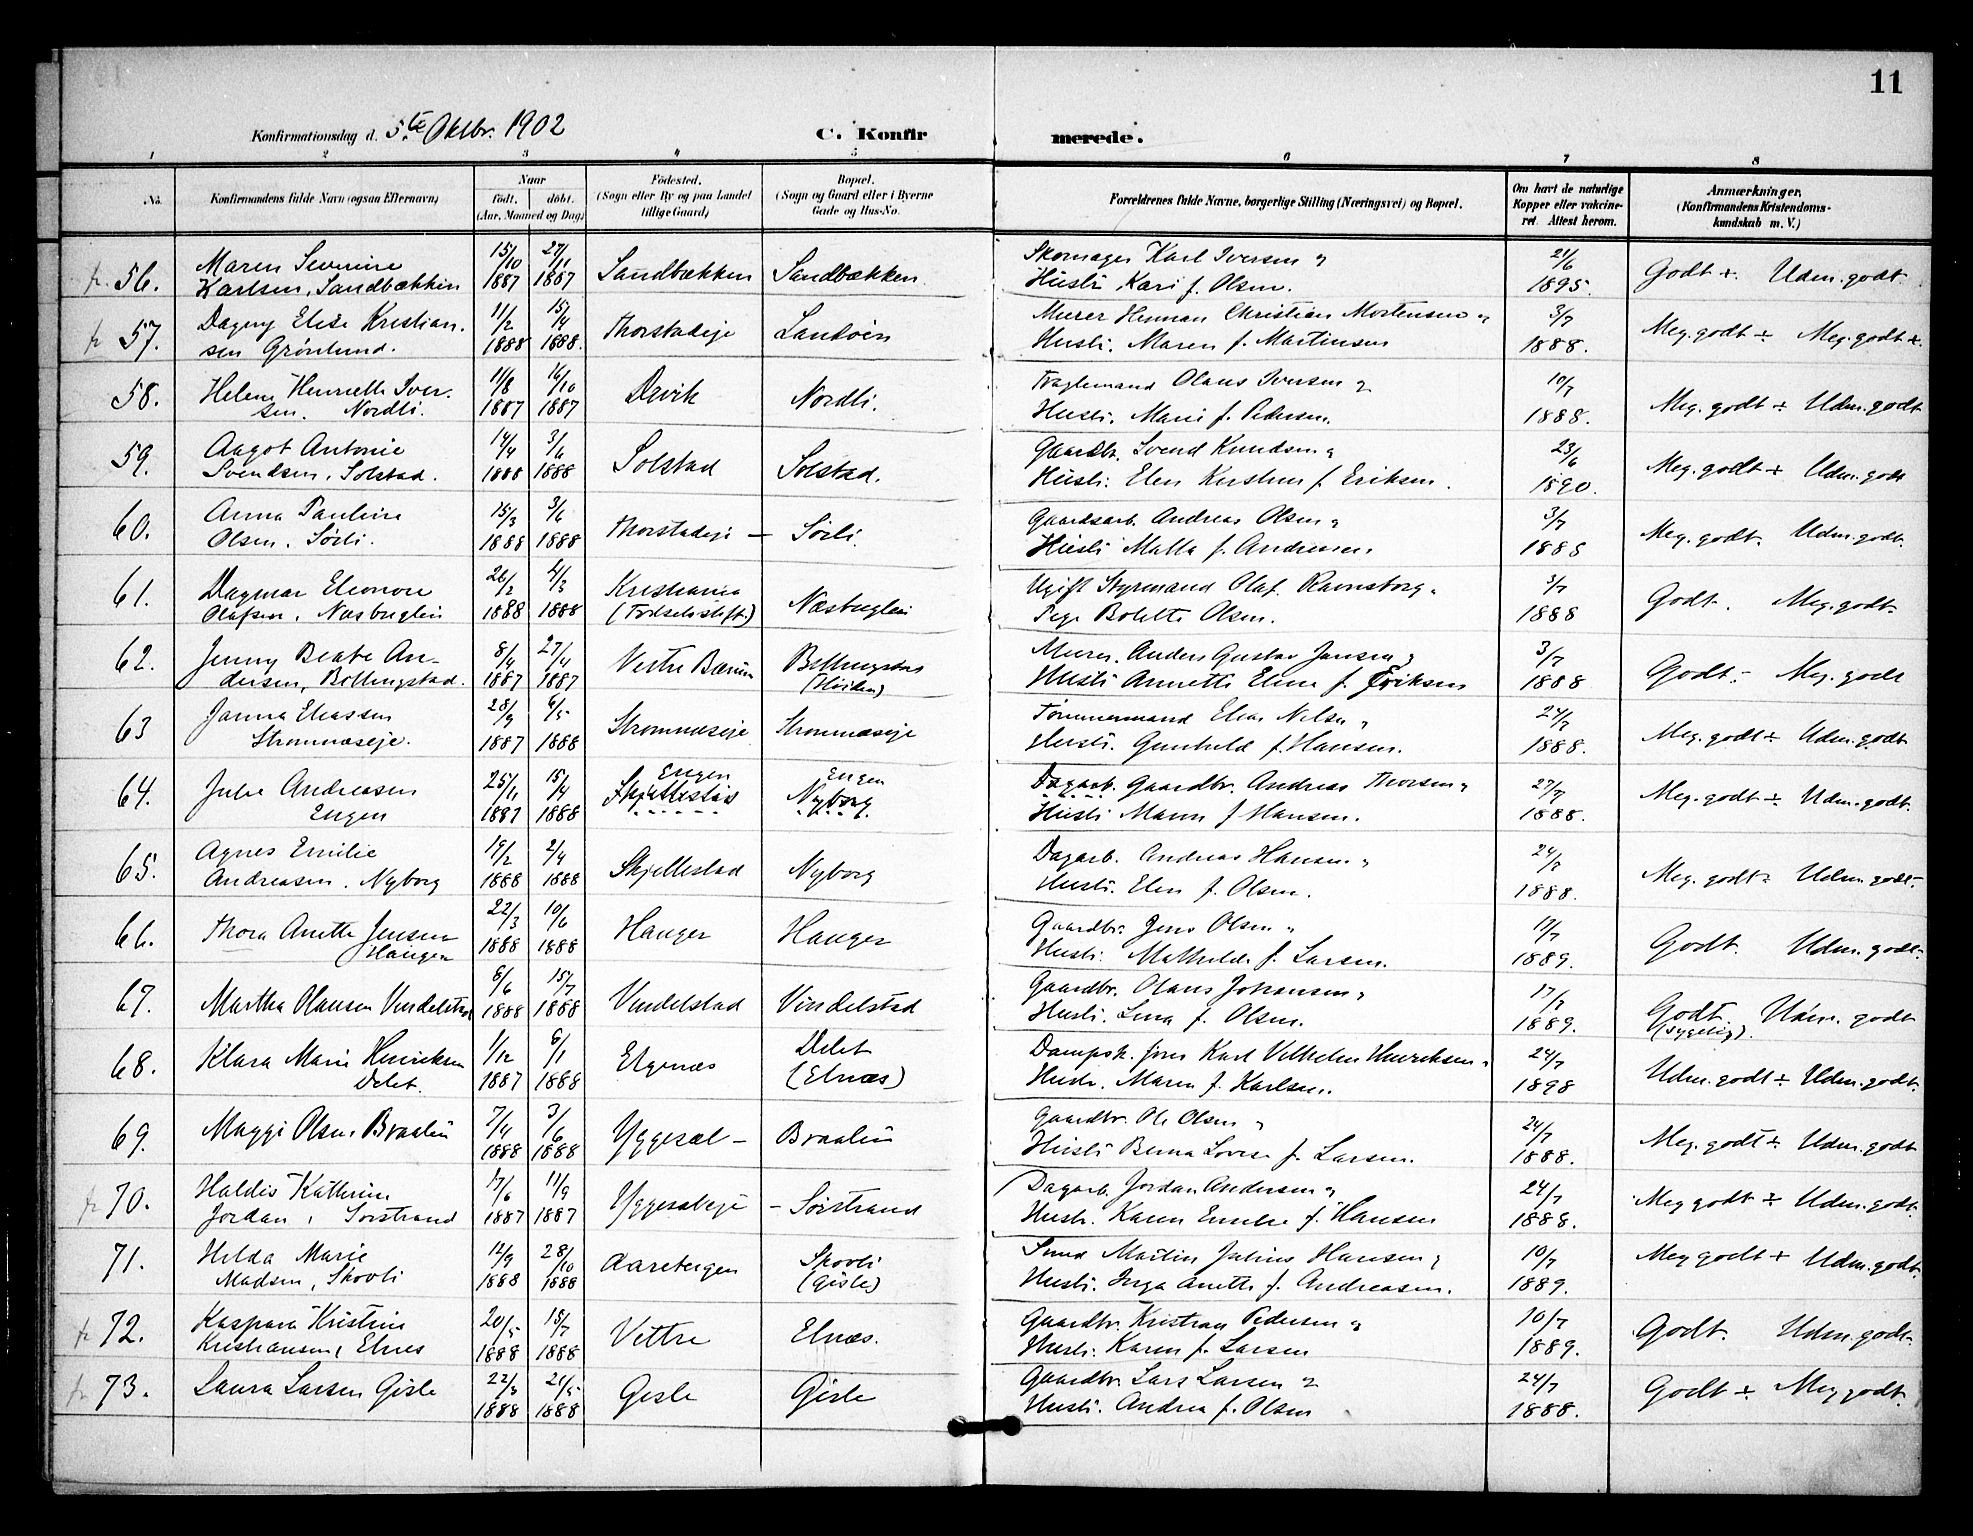 11
Konfirmationsdag d. 5te Oktbr. 1902
C. Konfirmerede.
1 2 3 4 5 6 7 8
No.
Konfirmandens fulde Navn (ogsaa Efternavn)
Naar
født. døbt.
(Aar, Maaned og Dag)
Fødested.
(Sogn eller By og paa Landet
tillige Gaard)
Bopæl.
(Sogn og Gaard eller i Byerne
Gade og Hus-No.
Forældrenes fulde Navne, borgerlige Stilling (Næringsvei) og Bopæl.
Om havt de naturlige
Kopper eller vakcine-
ret. Attest herom.
Anmærkninger.
(Konfirmandens Kristendoms-
kundskab m. V.)
fr. 56. Maren Severine 15/10 27/11 Sandbækken Sandbækken. Skomager Karl Iversen 21/6 Godt +. Udm. godt.
Karlsen, Sandbækken 1887 1887 Hustr. Kari f. Olsen. 1895.
fr 57. Dagny Elise Kristian- 11/2 15/4 Thorstadeje Landøen Murer Herman Christian Mortensen 3/7 Meg. godt ÷ Meg. godt +.
sen Grønlund. 1888 1888. Hustr. Maren f. Martinsen 1888.
58. Helene Henriette Iver- 11/8 16/10 Drvik Nordli. Olaus Iversen 10/7 Meg. godt ÷ Udm. godt
sen. Nordli. 1887 1887 Hustr. Marie f. Pedersen. 1888.
59. Aagot Antonie 14/4 3/6 Solstad Solstad. Gaardbr. Svend Knudsen 23/6 Meg. godt + Udm. godt
Svendsen, Solstad. 1888 1888 Hustr. Elen Kirstine f. Eriksen. 1890.
60. Anna Pauline 15/3 3/6 Thorstadeje — Sörli. Gaardsarb. Andreas Olsen 3/7 Meg. godt. Udm. godt.
Olsen. Sörli. 1888 1888 Hustr. Matta f. Andreasen 1888
61. Dagmar Eleonore 26/2 4/3 Kristiania Næsbuglen Ugift Styrmand Olaf Ravnsborg 3/7 Godt. Meg. godt.
Olafsen, Næsbuglen 1888 1888 (Födselsstift.) Pige Bolette Olsen. 1888
62. Jenny Beate An- 8/4 27/4 Vestre Bærum Billingstad Murer. Anders Gustav Jansen 3/7 Godt.- Meg. godt
dersen, Billingstad. 1887 1887 Hustr. Annette Eline f. Eriksen 1888
63 Janna Eliassen 28/9 6/5 Strømnæseje Strømnæseje Tømmermand Elias Nilsen 24/7 Meg. godt ÷ Udm. godt
Strømnæseje. 1887 1888 Hustr. Gunhild f. Hansen. 1888.
64. Julie Andreasen 25/11 15/4 Engen Skjellestad Engen Nyborg. Dagarb. Gaardbr. Andreas Thorsen 27/7 Meg. godt ÷ Udm. godt.
Engen 1887 1888 Hustr. Maren f Hansen. 1888.
65. Agnes Emilie 19/2 2/4 Skjellestad Nyborg Dagarb. Andreas Hansen 24/7 Meg. godt. Udm. godt.
Andreasen. Nyborg 1888 1888 Hustr. Elen f. Olsen. 1888.
66. Thora Anette Jensen 22/3 10/6 Hauger Hauger Gaardbr. Jens Olsen 17/7 Godt. Udm. godt.
Haugen 1888 1888 Hustr. Mathilde f. Larsen. 1889.
67. Martha Olausen Vindelstad 6/6 15/7 Vendelstad Vindelstad Gaardbr. Olaus Johansen 17/7 Godt. Udm. godt
1888 1888 Hustr. Lina f. Olsen. 1889. (sygelig).
68. Klara Marie Henriksen 1/12 6/1 Elgenæs Delet Dampsk. fører Karl Vilhelm Henriksen 24/7 Udm. godt ÷ Udm. godt.
Delet. 1887 1888 (Elnæs) Hustr. Maren f. Karlsen. 1898
69. Maggi Olsen Braalin 7/4 3/6 Yggesæt — Braalin Gaardbr. Ole Olsen 24/7 Meg. godt ÷ Udm. godt
1888 1888 Hustr. Berna Lovise f. Larsen. 1888.
fr 70. Haldis Kathrine 17/6 11/9 Yggesæteje — Sörstrand Dagarb. Jordan Andersen 24/7 Meg godt ÷ Udm. godt.
Jordan, Sörstrand 1887 1887 Hustr. Karen Emilie f. Hansen 1888.
71. Hilda Marie 12/9 28/10 Aarebergen Skovli Smed Martin Julius Hansen 10/7 Meg godt + Udm. godt.
Madsen, Skovli 1888 1888 (Gisle) Hustr. Inga Anette f. Andreasen. 1889.
fr 72. Kaspara Kristine 20/5 15/7 Vettre Elnæs. Gaardbr. Kristian Pedersen 10/7 Godt. Udm. godt.
Kristiansen, Elnes 1888 1888 Hustr. Karen f. Larsen 1889.
fr 73. Laura Larsen Gisle 22/3 21/5 Gisle Gisle Gaardbr. Lars Larsen 24/7 Godt ÷ Meg godt.
1888 1888 Hustr. Andrea f. Olsen 1888.